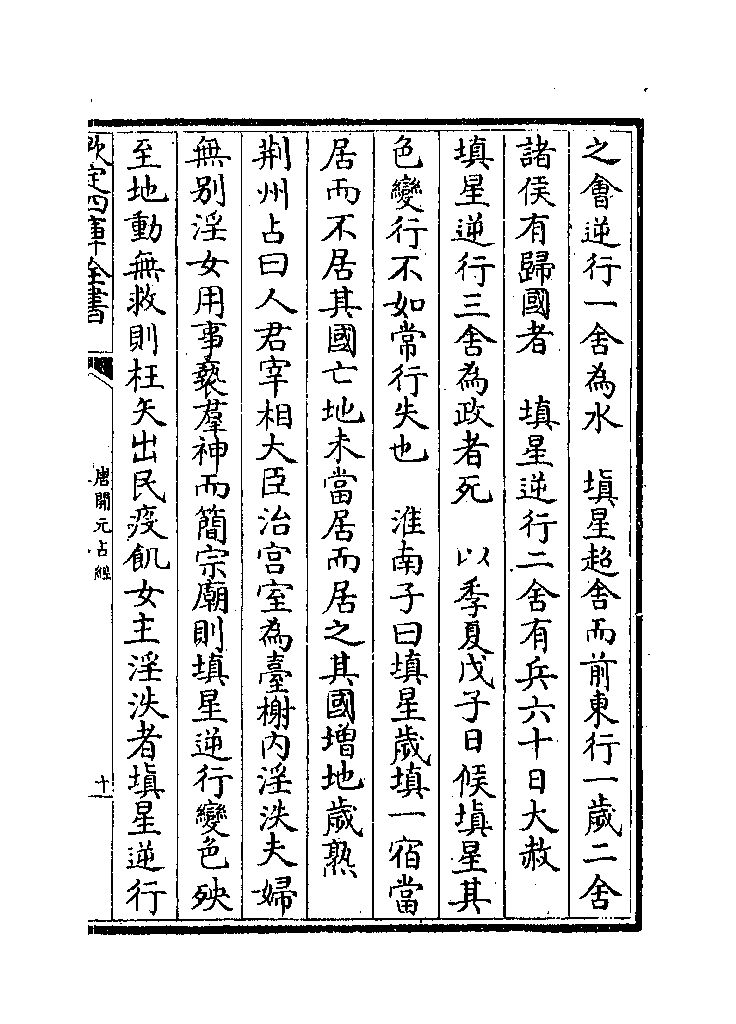 之會逆行一舍為水　填星超舍而前東行一歲二舍
諸侯有歸國者　填星逆行二舍有兵六十日大赦
填星逆行三舍為政者死　以季夏戊子日候填星其
色變行不如常行失也　淮南子曰填星歲填一宿當
居而不居其國亡地未當居而居之其國增地歲熟
荆州占曰人君宰相大臣治宫室為臺榭内淫泆夫婦
無别淫女用事褻羣神而簡宗廟則填星逆行變色殃
至地動無救則枉矢出民疫飢女主淫泆者填星逆行
欽定四庫全書
唐開元占經
十一